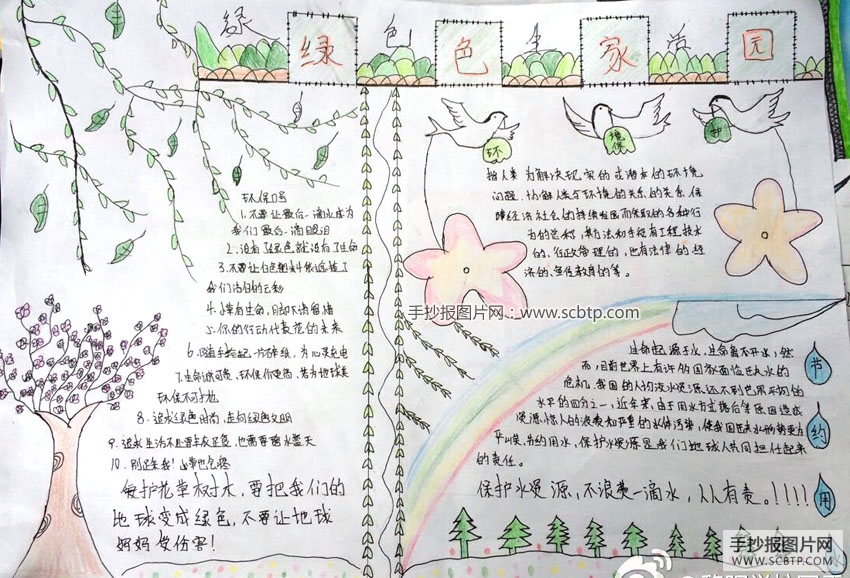 绿 色 生 活
绿 色 家 园
环 境保 护
环保口号
1.不要让最后一滴水成为
我们最后一滴眼泪
2.没有绿色就没有生命
3.不要让白色塑料袋遮挡了
我们洁白的云彩
4.小草有生命,
5.你的行动代表花的未来
6.随手拾起一片废纸,为心灵充电
7.生命诚可贵、环保价更高、若为地球美
环保不可抛
8.追求绿色时尚,走向绿色文明
9.追求生活不止要丰衣足食,也需要碧水蓝天
10.别踩我!小草也怕疼
爱护花草树木,要把我们的
地球变成绿色,不要让地球
妈妈受伤害!
指人类为解决现实的或潜在的环境
问题,协解人类与环境的关系的关系、保
障经济社会的持续发展而采取的各种行
为的总称,其方法和手段有工程技术
的、行政管理的,也有法律的、经
济的、宣传教育的等。
手抄报图片网:www.scbtp.com
生命起源于水,生命离不开水,然
而,目前世界上有许多国家面临巨大水的
危机,我国的人均淡水资源还不到世界平均的
水平的四分之一,近年来,由于用水方式落后等原因造成
资源,惊人的浪费和严重的水体污染,使我国巨大水形势更为
严峻、节约用水,保护水资源是我们地球人共同担任起来
的责任。
保护水资源,不浪费一滴水,人人有责。!!!!
节
约
用
水
手抄报图片网
WWW.SCBTP.COM